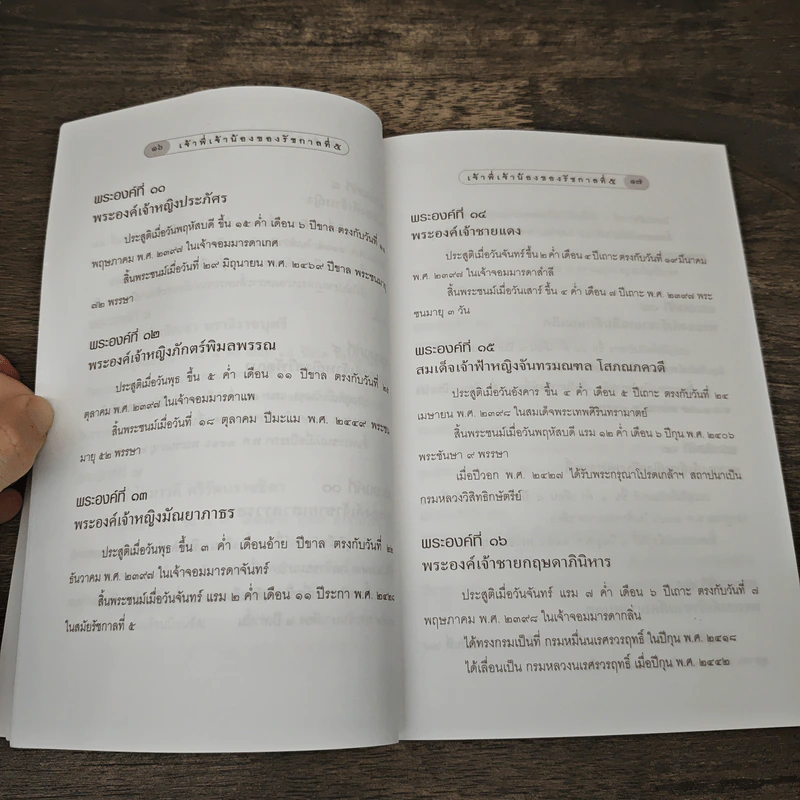 ๑๖ เจ้าพี่เจ้าน้องของรัชกาลที่ ๕
พระองค์ที่ ๑๑
พระองค์เจ้าหญิงประภัศร
ประสูติเมื่อวันพฤหัสบดี ขึ้น ๑๕ ค่ำ เดือน ๖ ปีขาล ตรงกับวันที่
พฤษภาคม พ.ศ. ๒๓๙๗ ในเจ้าจอมมารดาเกศ
สิ้นพระชนม์เมื่อวันที่ ๒๙ มิถุนายน พ.ศ. ๒๔๖๙ ปีขาล พระชนมายุ
๗๒ พรรษา
พระองค์ที่ ๑๒
พระองค์เจ้าหญิงภักตร์พิมลพรรณ
ประสูติเมื่อวันพุธ ขึ้น ๕ ค่ำ เดือน ๑๑ ปีขาล ตรงกับวันที่
ตุลาคม พ.ศ. ๒๓๙๗ ในเจ้าจอมมารดาแพ
สิ้นพระชนม์เมื่อวันที่ ๑๘ ตุลาคม ปีมะแม พ.ศ. ๒๔๔๙ พระชน
มายุ ๕๒ พรรษา
พระองค์ที่ ๑๓
พระองค์เจ้าหญิงมัณยาภาธร
ประสูติเมื่อวันพุธ ขึ้น ๓ ค่ำ เดือนอ้าย ปีขาล ตรงกับวันที่
ธันวาคม พ.ศ. ๒๓๙๗ ในเจ้าจอมมารดาจันทร์
สิ้นพระชนม์เมื่อวันจันทร์ แรม ๒ ค่ำ เดือน ๑๑ ปีระกา พ.ศ. ๒๔๒๘
ในสมัยรัชกาลที่ ๕
เจ้าพี่เจ้าน้องของรัชกาลที่ ๕ ๑๗
พระองค์ที่ ๑๔
พระองค์เจ้าชายแดง
ประสูติเมื่อวันจันทร์ ขึ้น ๒ ค่ำ เดือน ๔ ปีเถาะ ตรงกับวันที่ ๑๙ มีนาคม
พ.ศ. ๒๓๙๗ ในเจ้าจอมมารดาสำลี
สิ้นพระชนม์เมื่อวันเสาร์ ขึ้น ๔ ค่ำ เดือน ๗ ปีเถาะ พ.ศ. ๒๓๙๘ พระ
ชนมายุ ๓ วัน
พระองค์ที่ ๑๕
สมเด็จเจ้าฟ้าหญิงจันทรมณฑล โสภณภควดี
ประสูติเมื่อวันอังคาร ขึ้น ๔ ค่ำ เดือน ๕ ปีเถาะ ตรงกับวันที่ ๒๔
เมษายน พ.ศ. ๒๓๙๘ ในสมเด็จพระเทพศิรินทรามาตย์
สิ้นพระชนม์เมื่อวันพฤหัสบดี แรม ๑๒ ค่ำ เดือน ๖ ปีกุน พ.ศ. ๒๔๐๖
พระชันษา ๙ พรรษา
เมื่อปีวอก พ.ศ. ๒๔๒๗ ได้รับพระกรุณาโปรดเกล้าฯ สถาปนาเป็น
กรมหลวงวิสิทธิกษัตรีย์
พระองค์ที่ ๑๖
พระองค์เจ้าชายกฤษดาภินิหาร
ประสูติเมื่อวันจันทร์ แรม ๗ ค่ำ เดือน ๖ ปีเถาะ ตรงกับวันที่ ๗
พฤษภาคม พ.ศ. ๒๓๙๘ ในเจ้าจอมมารดากลิ่น
ได้ทรงกรมเป็นที่ กรมหมื่นนเรศรวรฤทธิ์ ในปีกุน พ.ศ. ๒๔๑๘
ได้เลื่อนเป็น กรมหลวงนเรศรวรฤทธิ์ เมื่อปีกุน พ.ศ. ๒๔๔๒